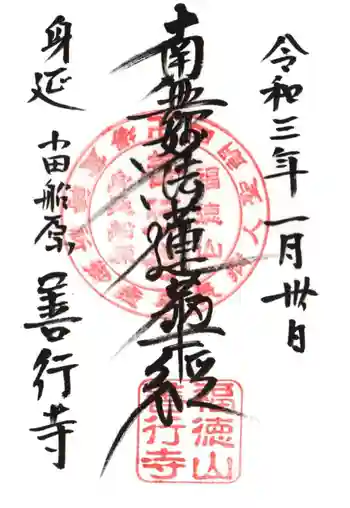 令和三年一月卅日
南無妙法蓮華経
身延
小田船原
善行寺
福徳山
善行寺
福徳山